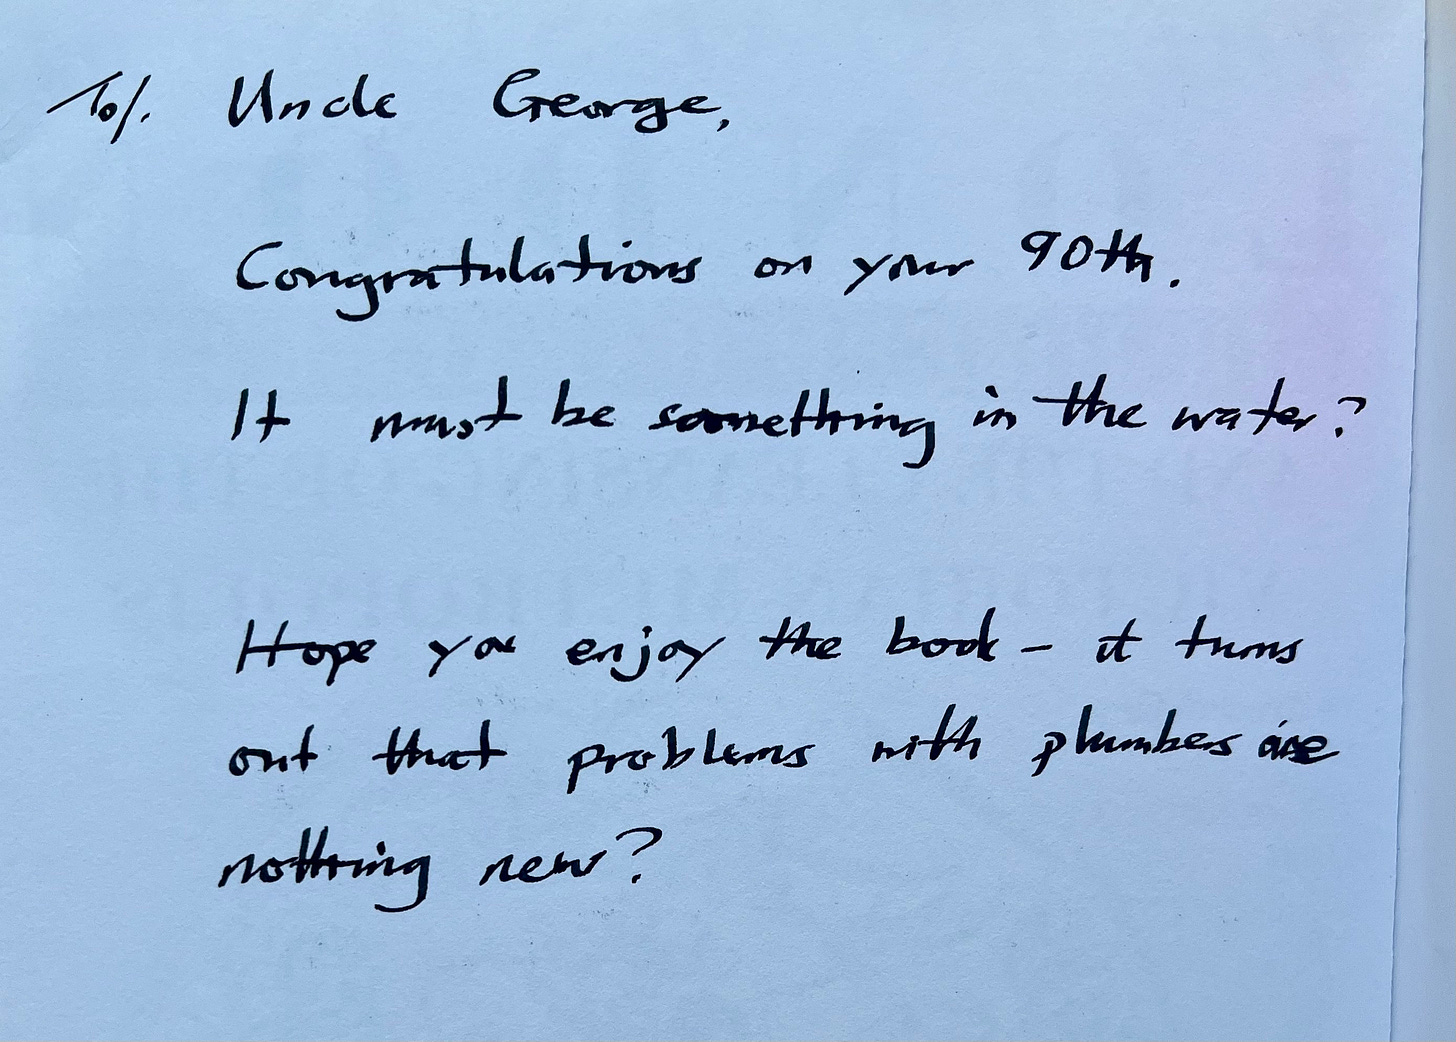 To/. Uncle George,
Congratulations on your 90th.
It must be something in the water?
Hope you enjoy the book – it turns
out that problems with plumbers are
nothing new?